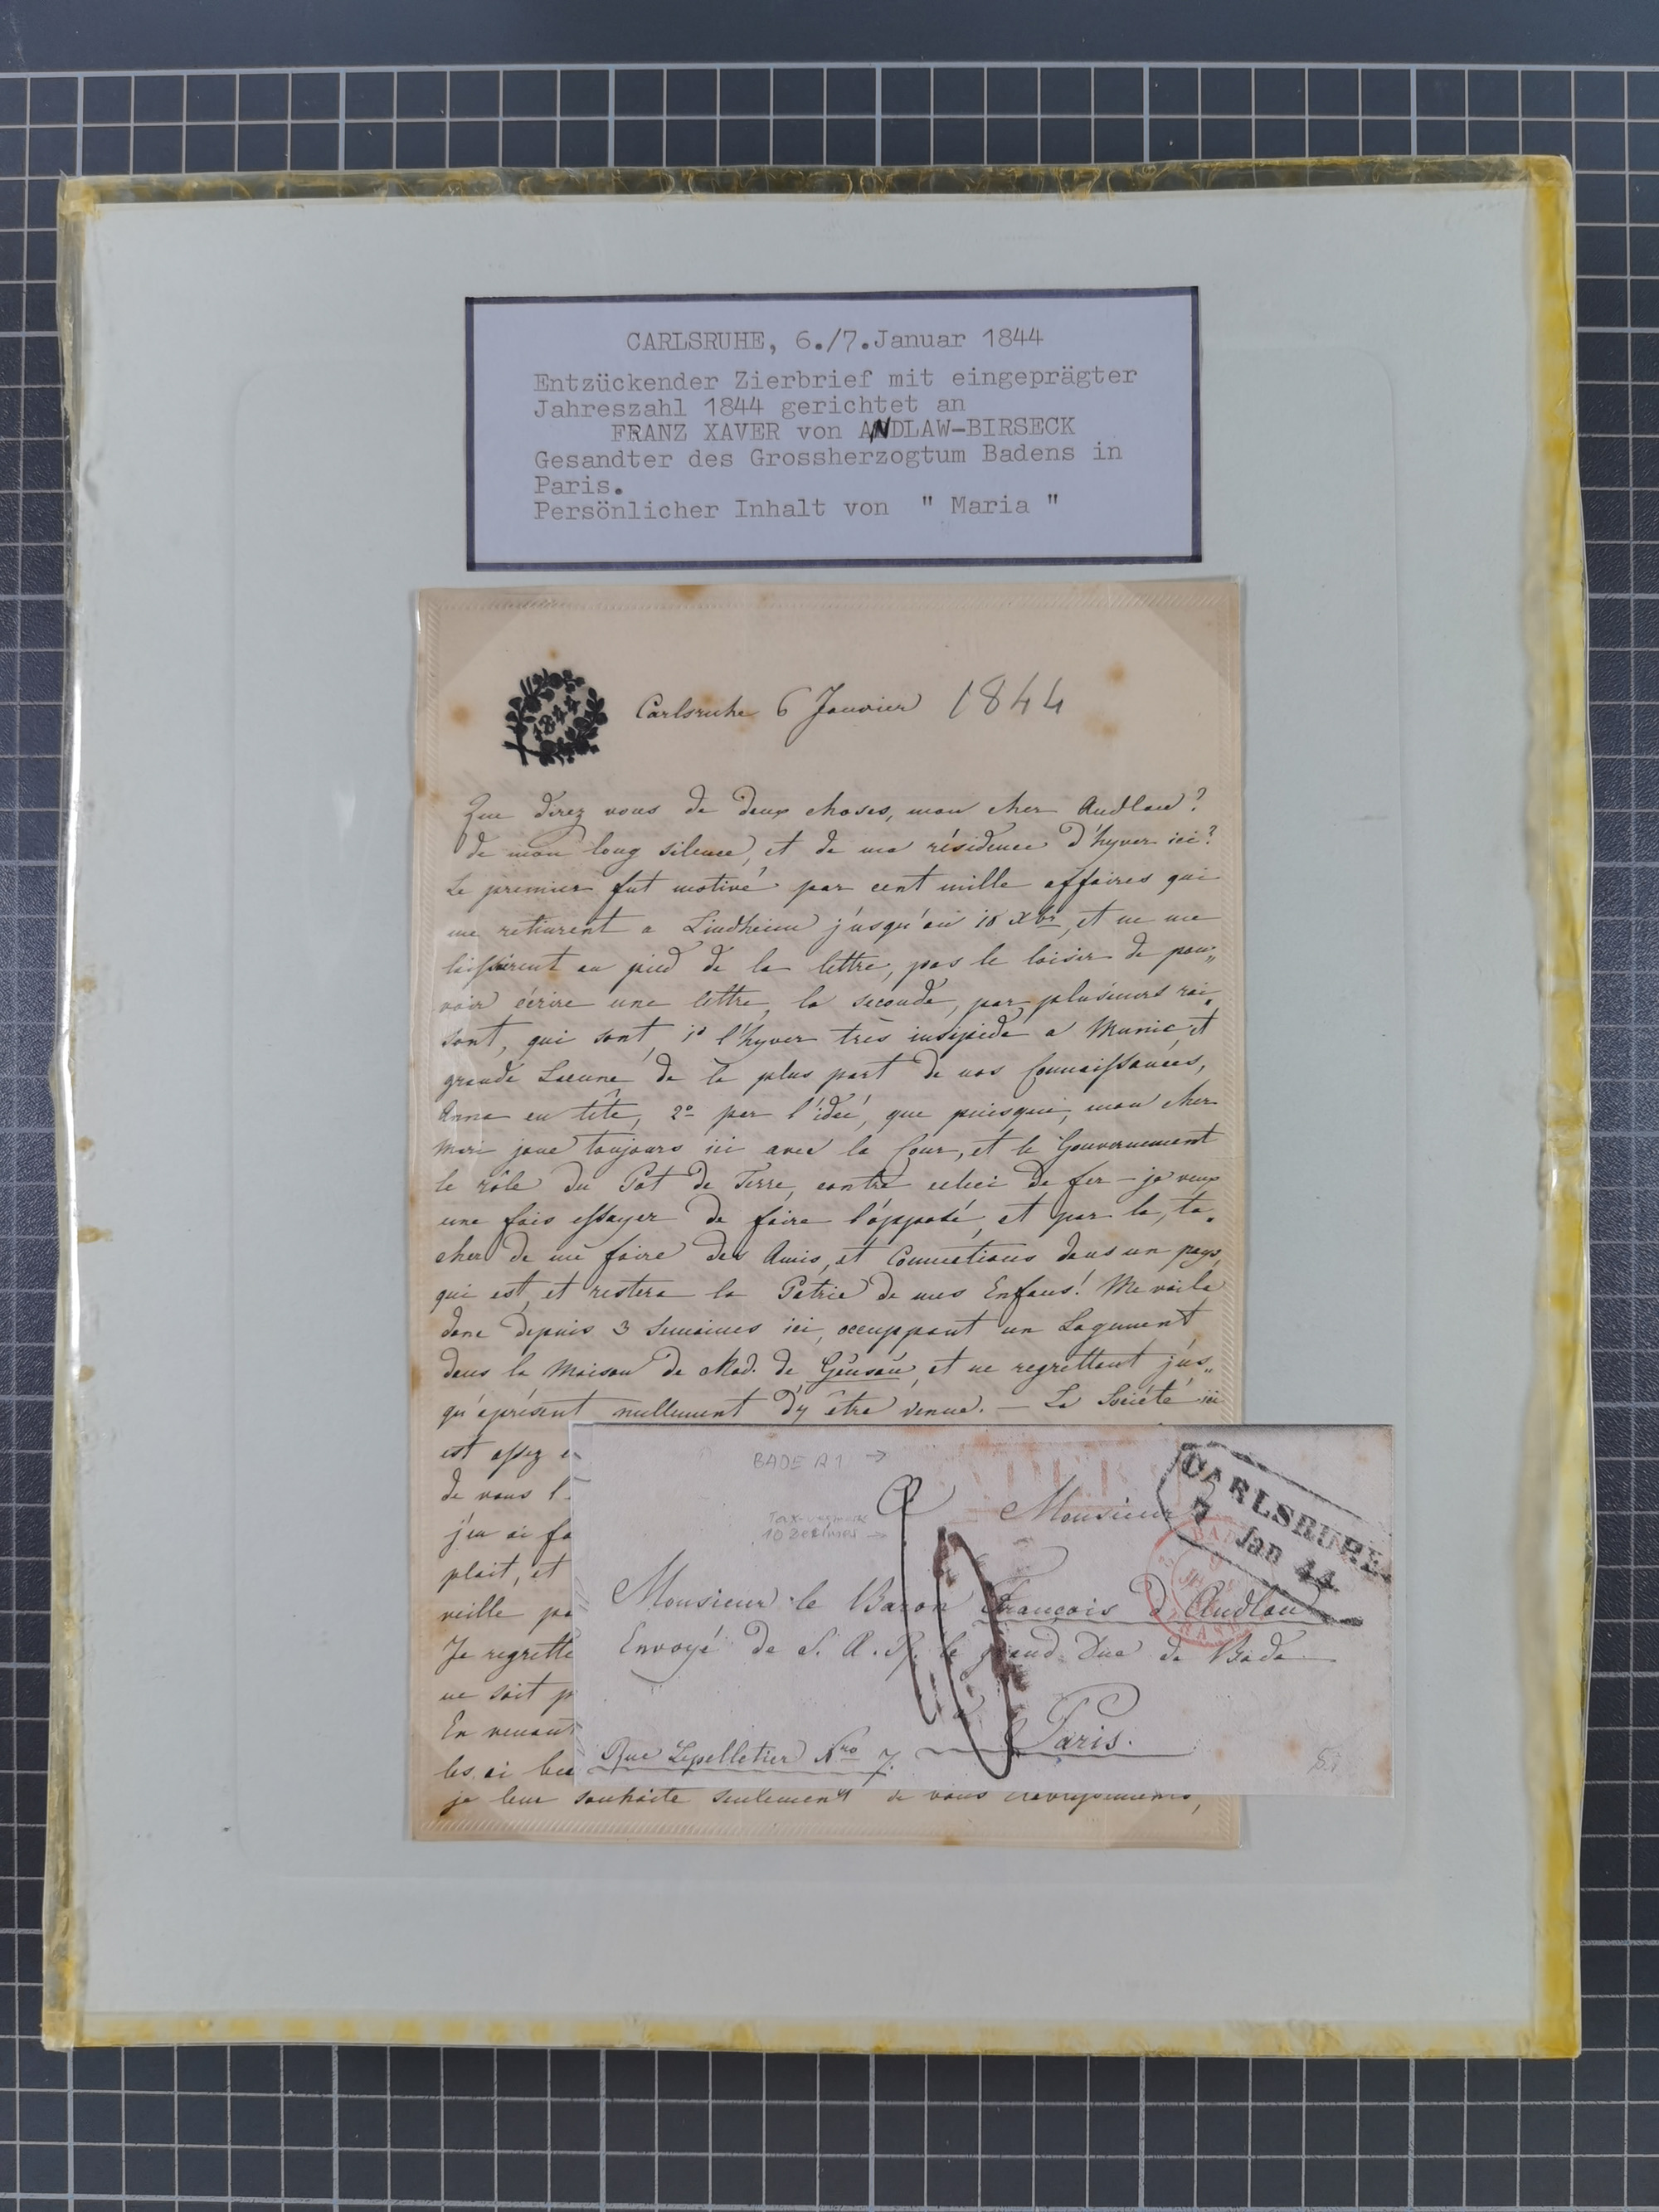 CARLSRUHE, 6./7.Januar 1844
Entzückender Zierbrief mit eingeprägter
Jahreszahl 1844 gerichtet an
FRANZ XAVER von ANDLAW-BIRSECK
Gesandter des Grossherzogtum Badens in
Paris.
Persönlicher Inhalt von " Maria "
1844
Carlsruhe 6 Janvier 1844
Que direz vous de deux choses, mon cher Andlau?
de mon long silence, et de ma résidence d'hyver ici?
Le premier fut motivé par cent mille affaires qui
me retinrent a Lindheim jusqu'au 18 Xbr, et ne me
laissèrent au pied de la lettre, pas le loisir de pou„
voir écrire une lettre, la seconde, par plusieurs rai
sont, qui sont, 1º l'hyver très insipide a Munic, et
grande Lacune de la plus part de nos Connaissances,
Anna en tête, 2º par l'idée, que puisque, mon cher
Mari joue toujours ici avec la Cour, et le Gouvernement
le rôle du Pot de Terre, contre celui de fer – je veux
une fois essayer de faire l'opposé, et par la, ta
cher de me faire des Amis, et Connections dans un pays,
qui est, et restera la Patrie de mes Enfans! Me voila
donc depuis 3 Semaines ici, occuppant un Logement
dans la Maison de Mad. de Geusau, et ne regrettant jus„
qu'aprésent nullement d'y être venue. – La Société ici
est assez
de vous
j'en ai
plait, et
veille
Je regrette
ne soit
En venant
les ai
je leur souhaite seulement de vous
BADE R 1 →
10 →
CARLSRUHE
7 Jan 44
Monsieur
Monsieur le Baron François d'Andlau
Envoyé de S. A. R. le grand Duc de Bade
Paris.
Rue Lepelletier Nro 7.